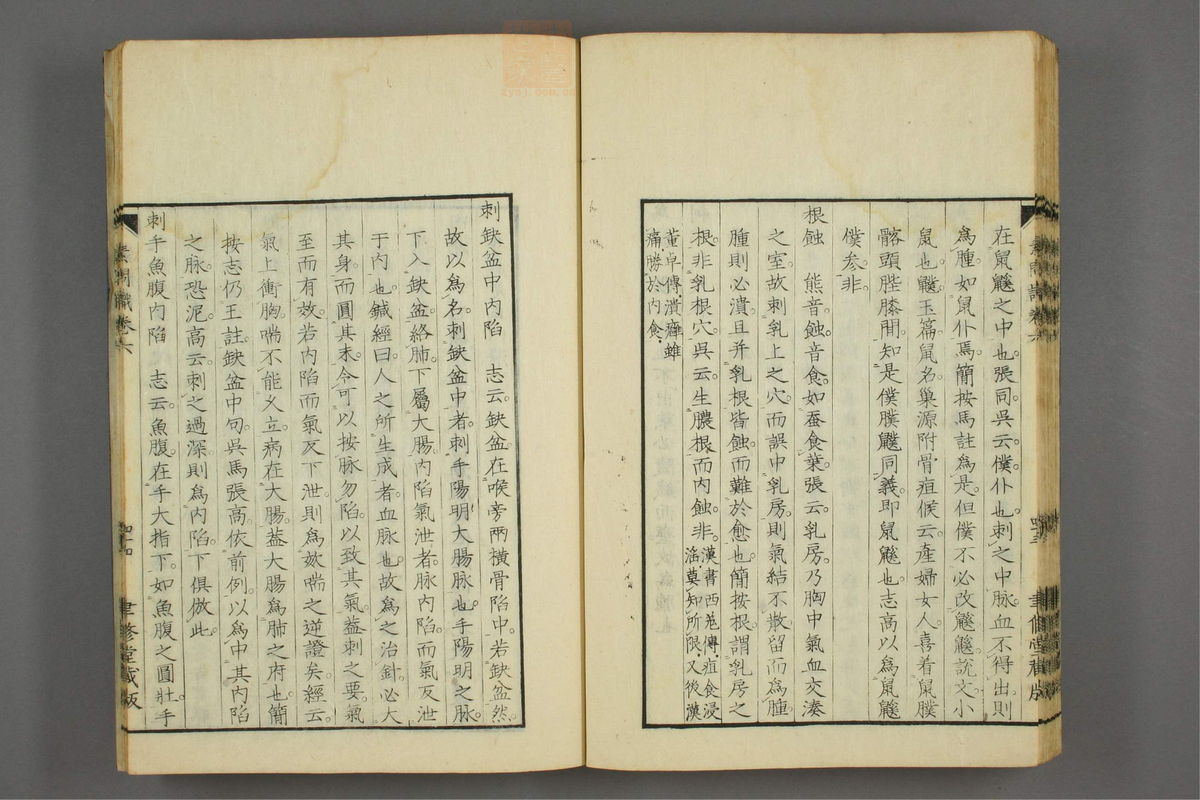 在鼠鼷之中也張同吳云僕仆也刺之中脉血不得出則
爲腫如鼠仆焉簡按馬註爲是但僕不必改鼷鼷說文小
鼠也䑕玉篇鼠名巢源附骨疽候云產婦女人喜着鼠䑕
髂頭䏶膝間知是僕䑕鼷同義即鼠鼷也志高以爲鼠鼷
僕参非
根蝕 熊音蝕音食如蚕食葉張云乳房乃胸中氣血交湊
之室故刺乳上之穴而誤中乳房則氣結不散留而爲腫
腫則必潰且并乳根皆蝕而難於愈也簡按根謂乳房之
根非乳根穴吳云生膿根而内蝕非漢書西苑傳疽食浸淫莫知所限又後漢
董卓傳潰癰雖痛勝於内食
刺缺盆中内陷 志云缺盆在喉旁兩橫骨陷中若缺盆然
故以爲名刺缺盆中者刺手陽明大腸脉也手陽明之脉
下入缺盆絡肺下屬大腸内陷氣泄者脉内陷而氣反泄
于内也鍼經曰人之所生成者血脉也故爲之治針必大
其身而圓其末令可以按脉勿陷以致其氣蓋刺之要氣
至而有效若内陷而氣反下泄則爲欬喘之逆證矣經云
氣上衝胸喘不能久立病在大腸蓋大腸爲肺之府也簡
按志仍王註缺盆中句吳馬張高依前例以爲中其内陷
之脉恐泥高云刺之過深則爲内陷下俱倣此
刺手魚腹内陷 志云魚腹在手大指下如魚腹之圓壯手
素問識卷六
聿修堂藏版